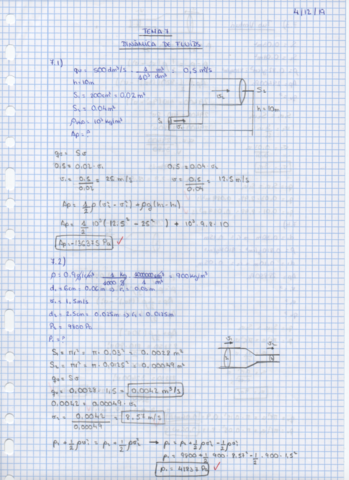 4/12/19
TEMA 7
DINÀMICA DE FLUIDS
7.1)
qv = 500 dm³/s · 1 m³ / 10³ dm³ = 0,5 m³/s
h = 10m
S₁ = 200cm² = 0.02 m²
S₂ = 0.04m²
ρH₂O = 10³ kg/m³
Δp = ?
S₂
h = 10m
S₁
qv = S v
0.5 = 0.02 · v₁
0.5 = 0.04 · v₂
v₁ = 0.5 / 0.02 = 25 m/s
v₂ = 0.5 / 0.04 = 12.5 m/s
Δp = 1/2 ρ (v₂² - v₁²) + ρg (h₂ - h₁)
Δp = 1/2 10³ (12.5² - 25²) + 10³ · 9.8 · 10
Δp = -136375 Pa ✓
7.2)
ρ = 0.9g/cm³ · 1 kg / 1000 g · 1000000 cm³ / 1 m³ = 900 kg/m³
d₁ = 6cm = 0.06m → r₁ = 0.03m
v₁ = 1.5m/s
d₂ = 2.5cm = 0.025m → r₂ = 0.0125m
P₂ = 9800 Pa
P₁ = ?
S₁ = πr² = π · 0.03² = 0.0028 m²
S₂ = πr² = π · 0.0125² = 0.00049 m²
qv = S v
qv = 0.0028 · 1.5 = 0.0042 m³/s
0.0042 = 0.00049 · v₂
v₂ = 0.0042 / 0.00049 = 8.57 m/s
p₁ + 1/2 ρv₁² = p₂ + 1/2 ρv₂² → p₁ = p₂ + 1/2 ρv₂² - 1/2 ρv₁²
p₁ = 9800 + 1/2 · 900 · 8.57² - 1/2 · 900 · 1.5²